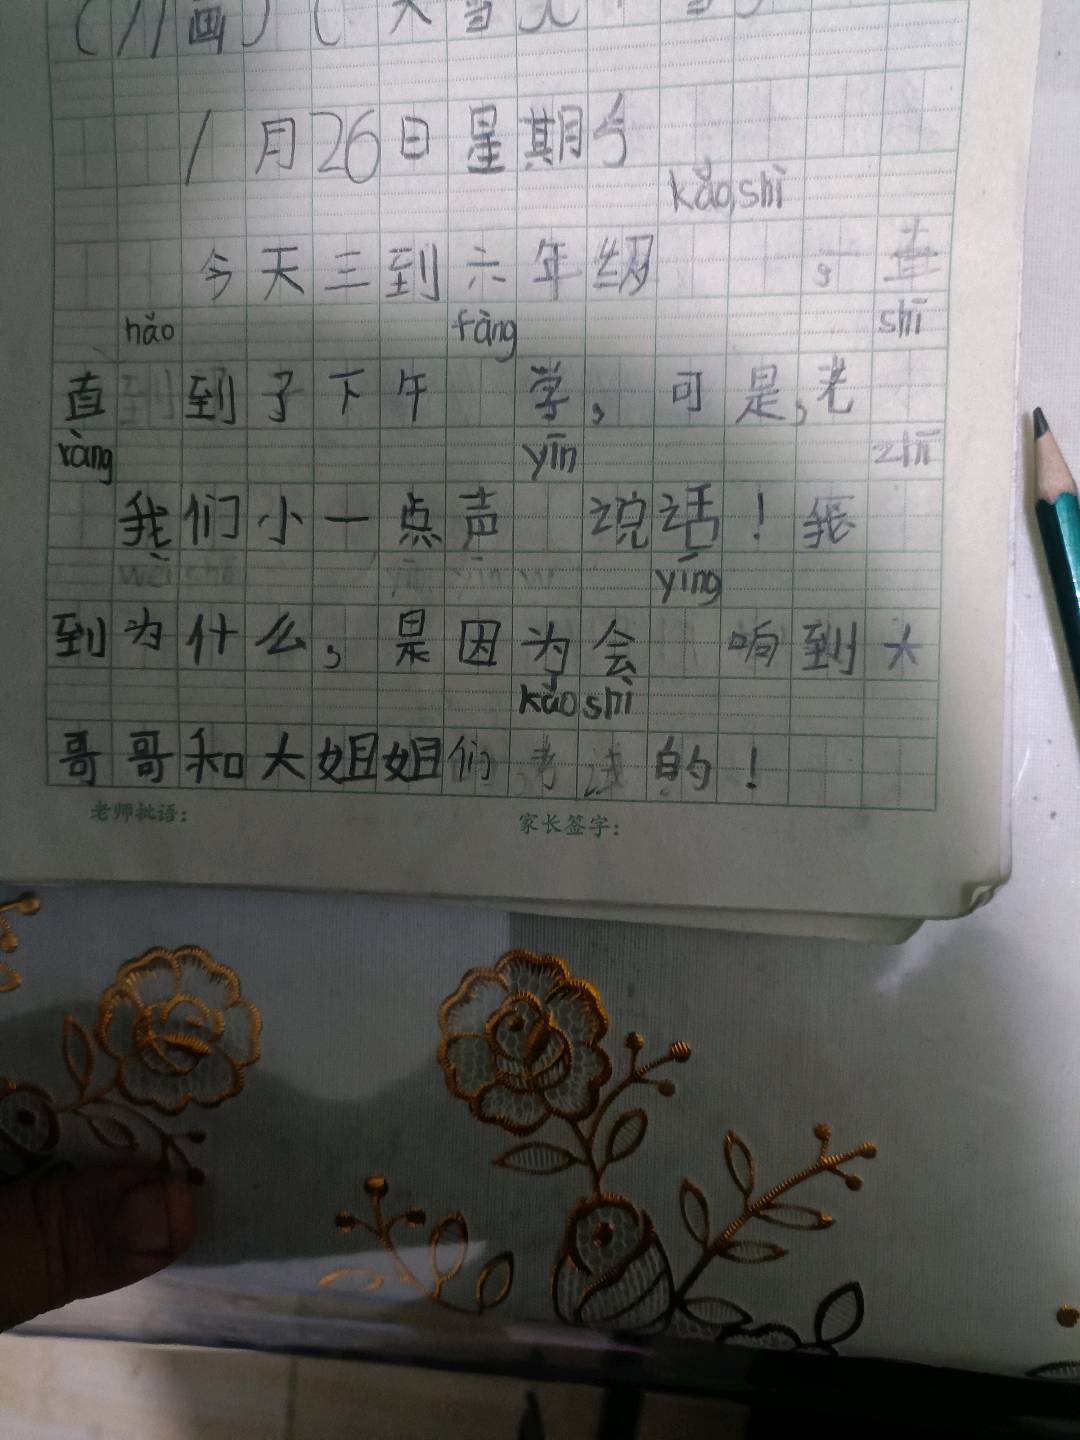 1月26日星期
kǎo shì
今天三到六年级 ，直
hǎo fàng shī
直到到了下午 学，可是，老
ràng yīn zhī
我们小一点声 说话！我
yǐng
到为什么，是因为会 响到大
kǎo shì
哥哥和大姐姐们考试的！
老师批语： 家长签字：